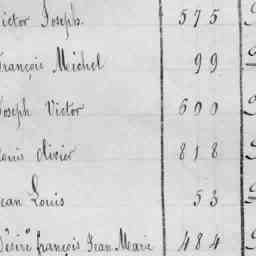 Victor Joseph. 575
François Michel 99
Joseph Victor 600
Louis Olivier 818
Jean Louis 53
Désiré françois Jean Marie 484